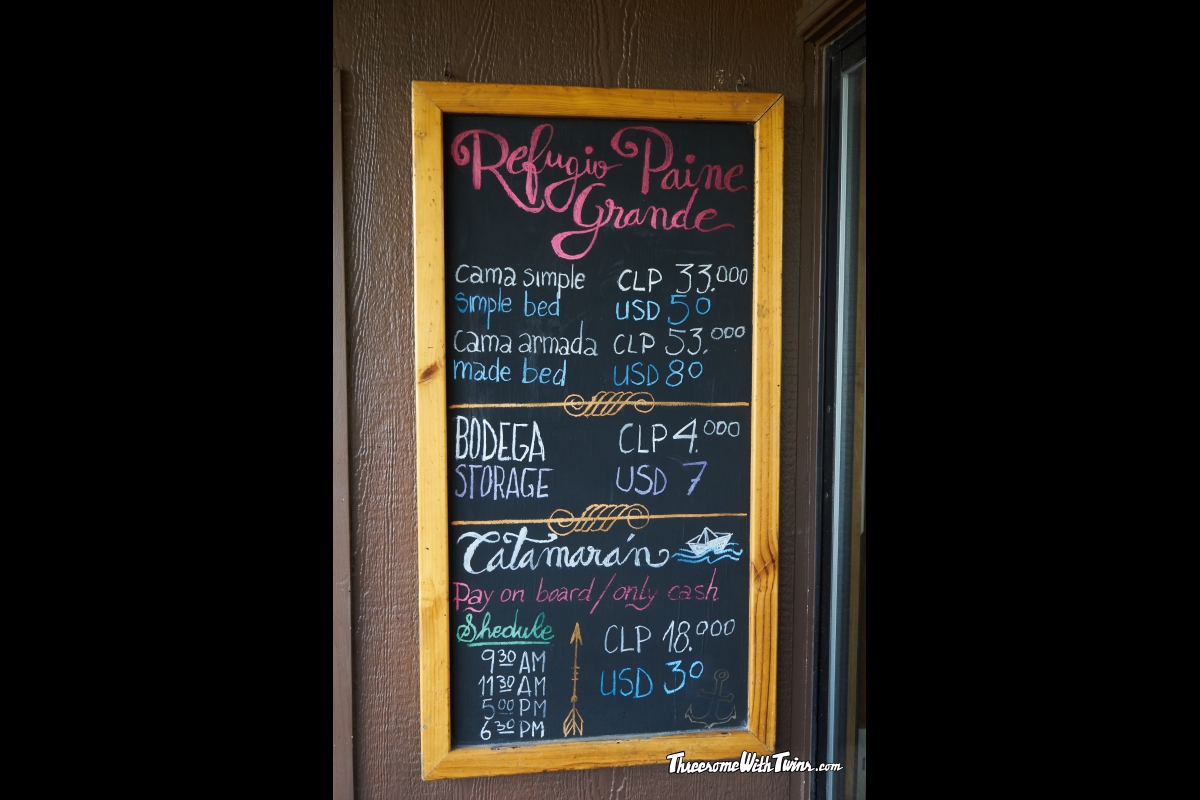 Refugio Paine
Grande
cama simple CLP 33.000
simple bed USD 50
cama armada CLP 53.000
made bed USD 80
BODEGA CLP 4.000
STORAGE USD 7
Catamarán
Pay on board/only cash
Shedule CLP 18.000
9:30 AM
11:30 AM USD 30
5:00 PM
6:30 PM
ThreeromeWithTwins.com